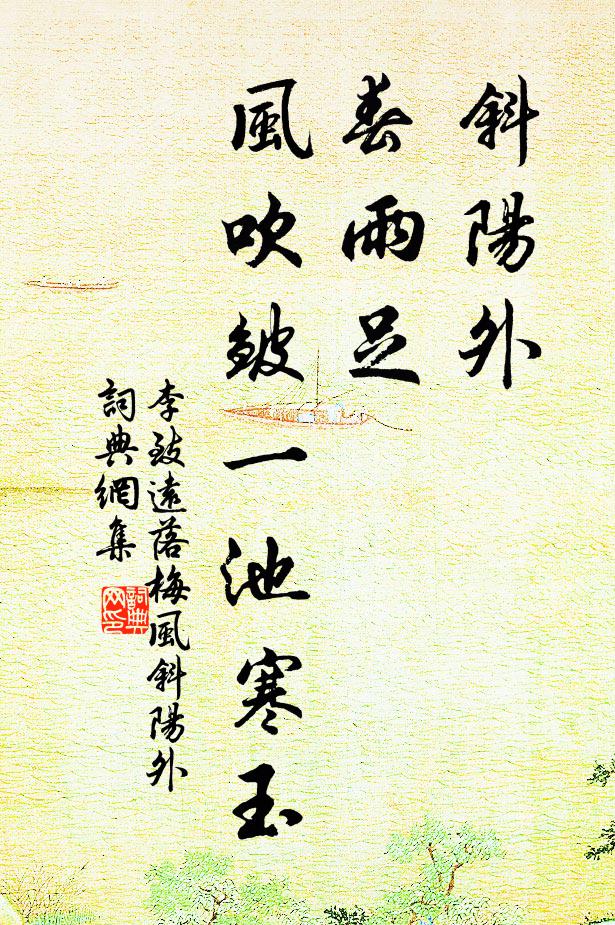 斜陽外
春雨足
風吹皺一池寒玉
李致遠落梅風斜陽外
詞典網集
詞典
网印